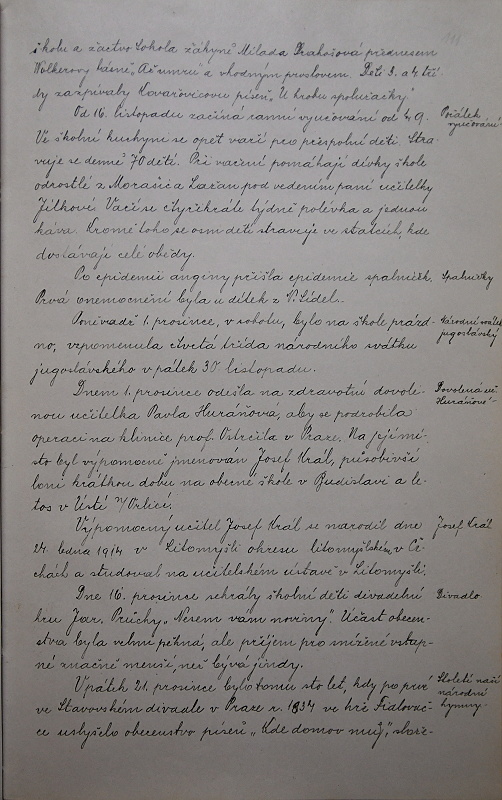 školu a žactvo Sokola žákyně Milada Drahošová přednesem
Wolkerovy básně „Až umru" a vhodným proslovem. Děti 3. a 4. tří-
dy zazpívaly Kovařovicovu píseň „U hrobu spolužačky".
Od 16. listopadu začíná ranní vyučování od ½9.
Počátek vyučování
Ve školní kuchyni se opět vaří pro přespolní děti. Stra-
vuje se denně 70 dětí. Při vaření pomáhají dívky škole
odrostlé z Morašic a Lažan pod vedením paní učitelky
Jílkové. Vaří se čtyřikráte týdně polévka a jednou
káva. Kromě toho se osm dětí stravuje ve statcích, kde
dostávají celé obědy.
Po epidemii anginy přišla epidemie spalniček.
Spalničky
Prvá onemocnění byla u dítek z N. Sídel.
Poněvadž 1. prosince, v sobotu, bylo na škole prázd-
Národní svátek jugoslávský
no, vzpomenula čtvrtá třída národního svátku
jugoslávského v pátek 30 listopadu.
Dnem 1. prosince odešla na zdravotní dovole-
Dovolená uč. Huráňové
nou učitelka Pavla Huráňová, aby se podrobila
operaci na klinice prof. Ostrčila v Praze. Na její mí-
sto byl výpomocně jmenován Josef Král, působivší
loni krátkou dobu na obecné škole v Budislavi a le-
tos v Ústí n/Orlicí.
Výpomocný učitel Josef Král se narodil dne
Josef Král
24. ledna 1914 v Litomyšli okresu litomyšlském, v Če-
chách a studoval na učitelském ústavě v Litomyšli.
Dne 16. prosince sehrály školní děti divadelní
Divadlo
hru Jar. Průchy „Nesem vám noviny". Účast obecen-
stva byla velmi pěkná, ale příjem pro snížené vstup-
né značně menší, než bývá jindy.
V pátek 21. prosince bylo tomu sto let, kdy po prvé
Století naší národní hymny
ve Stavovském divadle v Praze r. 1834 ve hře Fidlovač-
ce uslyšelo obecenstvo píseň „Kde domov můj", slože-